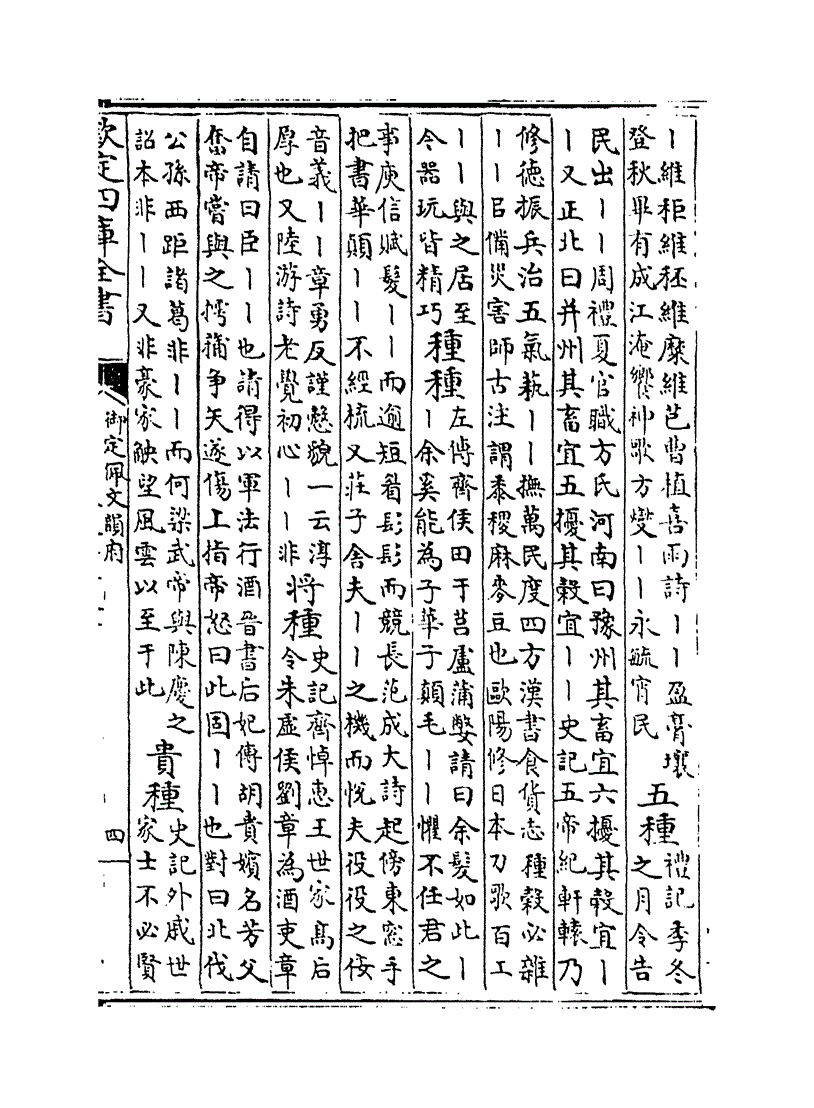 丨維秬維秠維糜維芑曹植喜雨詩丨丨盈膏壤
登秋畢有成江淹饗神歌方燮丨丨永毓宵民
五種
禮記季冬
之月令告
民出丨丨周禮夏官職方氏河南曰豫州其畜宜六擾其穀宜丨
丨又正北曰并州其畜宜五擾其穀宜丨丨史記五帝紀軒轅乃
修徳振兵治五氣蓺丨丨撫萬民度四方漢書食貨志種穀必雜
丨丨㠯備災害師古注謂黍稷麻麥豆也歐陽修日本刀歌百工
丨丨與之居至
令器玩皆精巧
種種
左傳齊侯田于莒盧蒲嫳請曰余髮如此丨
丨余奚能為子華子顛毛丨丨懼不任君之
事庾信賦髮丨丨而逾短眉髟髟而競長范成大詩起傍東窓手
把書華顛丨丨不經梳又莊子舍夫丨丨之機而悦夫役役之佞
音義丨丨章勇反謹慤貌一云淳
厚也又陸游詩老覺初心丨丨非
將種
史記齊悼恵王世家髙后
令朱虛侯劉章為酒吏章
自請曰臣丨丨也請得以軍法行酒晉書后妃傳胡貴嬪名芳父
奮帝嘗與之摴蒱争矢遂傷上指帝怒曰此固丨丨也對曰北伐
公孫西距諸葛非丨丨而何梁武帝與陳慶之
詔本非丨丨又非豪家觖望風雲以至于此
貴種
史記外戚世
家士不必賢
欽定四庫全書
御定佩文韻府
四